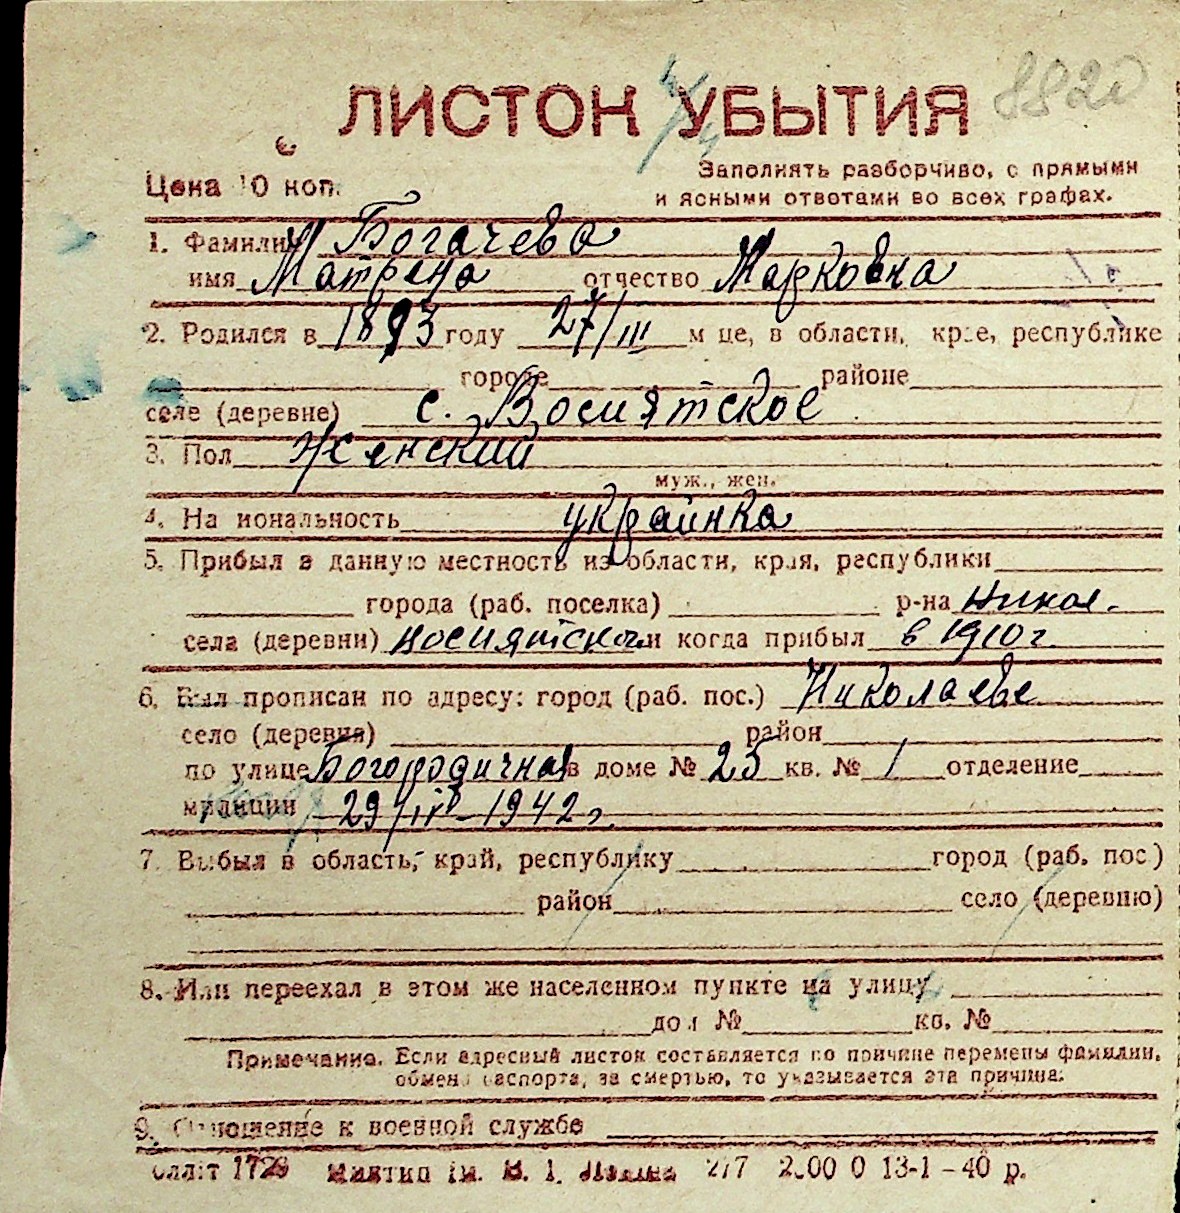 8820
ЛИСТОК УБЫТИЯ
Цена 10 коп.
Заполнять разборчиво, с прямыми
и ясными ответами во всех графах.
1. Фамилия Богачева
имя Матрена отчество Марковна
2. Родился в 1893 году 27/III м це, в области, крае, республике
городе районе
селе (деревне) с. Восиятское
3. Пол Женский
муж., жен.
4. На иональность украинка
5. Прибыл в данную местность из области, края, республики
города (раб. поселка) р-на Никол.
села (деревни) Восиятское и когда прибыл в 1910 г.
6. Был прописан по адресу: город (раб. пос.) Николаеве
село (деревня) район
по улице Богородичная в доме № 25 кв. № 1 отделение
милиции 29/IV-1942 г.
7. Выбыл в область, край, республику город (раб. пос)
район село (деревню)
8. Или переехал в этом же населенном пункте на улицу
дом № кв. №
Примечание. Если адресный листок составляется по причине перемены фамилии,
обмена паспорта, за смертью, то указывается эта причина.
9. Отношение к военной службе
1729 ім. В. І. Леніна 277 2.00 0 13-1-40 р.